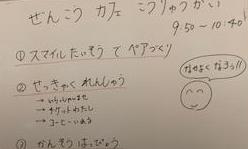 ぜんこう カフェ こうりゅうかい
9:50～10:40
① スマイルたいそう で ペアづくり
② せっきゃく れんしゅう
→ いらっしゃいませ
→ チケットわたし
→ コーヒーいれる
なかよく なろう!!
③ かんそう はっぴょう